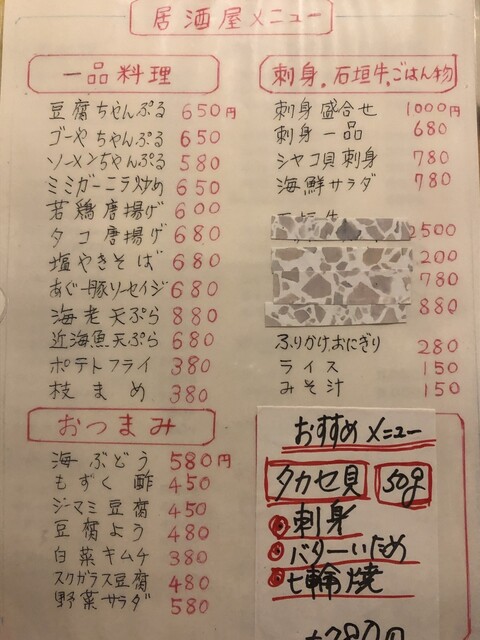 居酒屋メニュー
一品料理
豆腐ちゃんぷる 650円
ゴーやちゃんぷる 650
ソーメンちゃんぷる 580
ミミガーニラ炒め 650
若鶏唐揚げ 600
タコ唐揚げ 680
塩やきそば 680
あぐー豚ソーセイジ 680
海老天ぷら 880
近海魚天ぷら 680
ポテトフライ 380
枝まめ 380
おつまみ
海ぶどう 580円
もずく酢 450
ジーマミ豆腐 450
豆腐よう 480
白菜キムチ 380
スクガラス豆腐 480
野菜サラダ 580
刺身.石垣牛.ごはん物
刺身盛合せ 1000円
刺身一品 680
シャコ貝刺身 780
海鮮サラダ 780
2500
200
780
880
ふりかけおにぎり 280
ライス 150
みそ汁 150
おすすめメニュー
タカセ貝 50g
刺身
バターいため
七輪焼